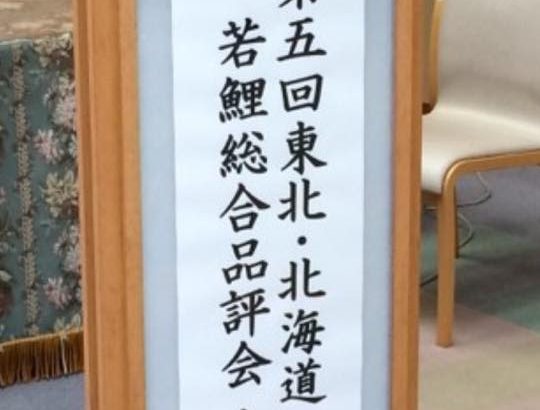 第五回東北・北海道
若鯉総合品評会